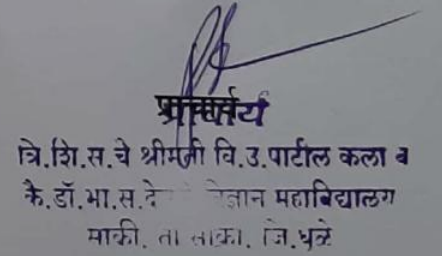 प्राचार्य
त्रि.शि.स.चे श्रीमती वि.उ.पाटील कला व
कै.डॉ.भा.स.दे विज्ञान महाविद्यालय
साक्री. ता साक्री. जि.धुळे